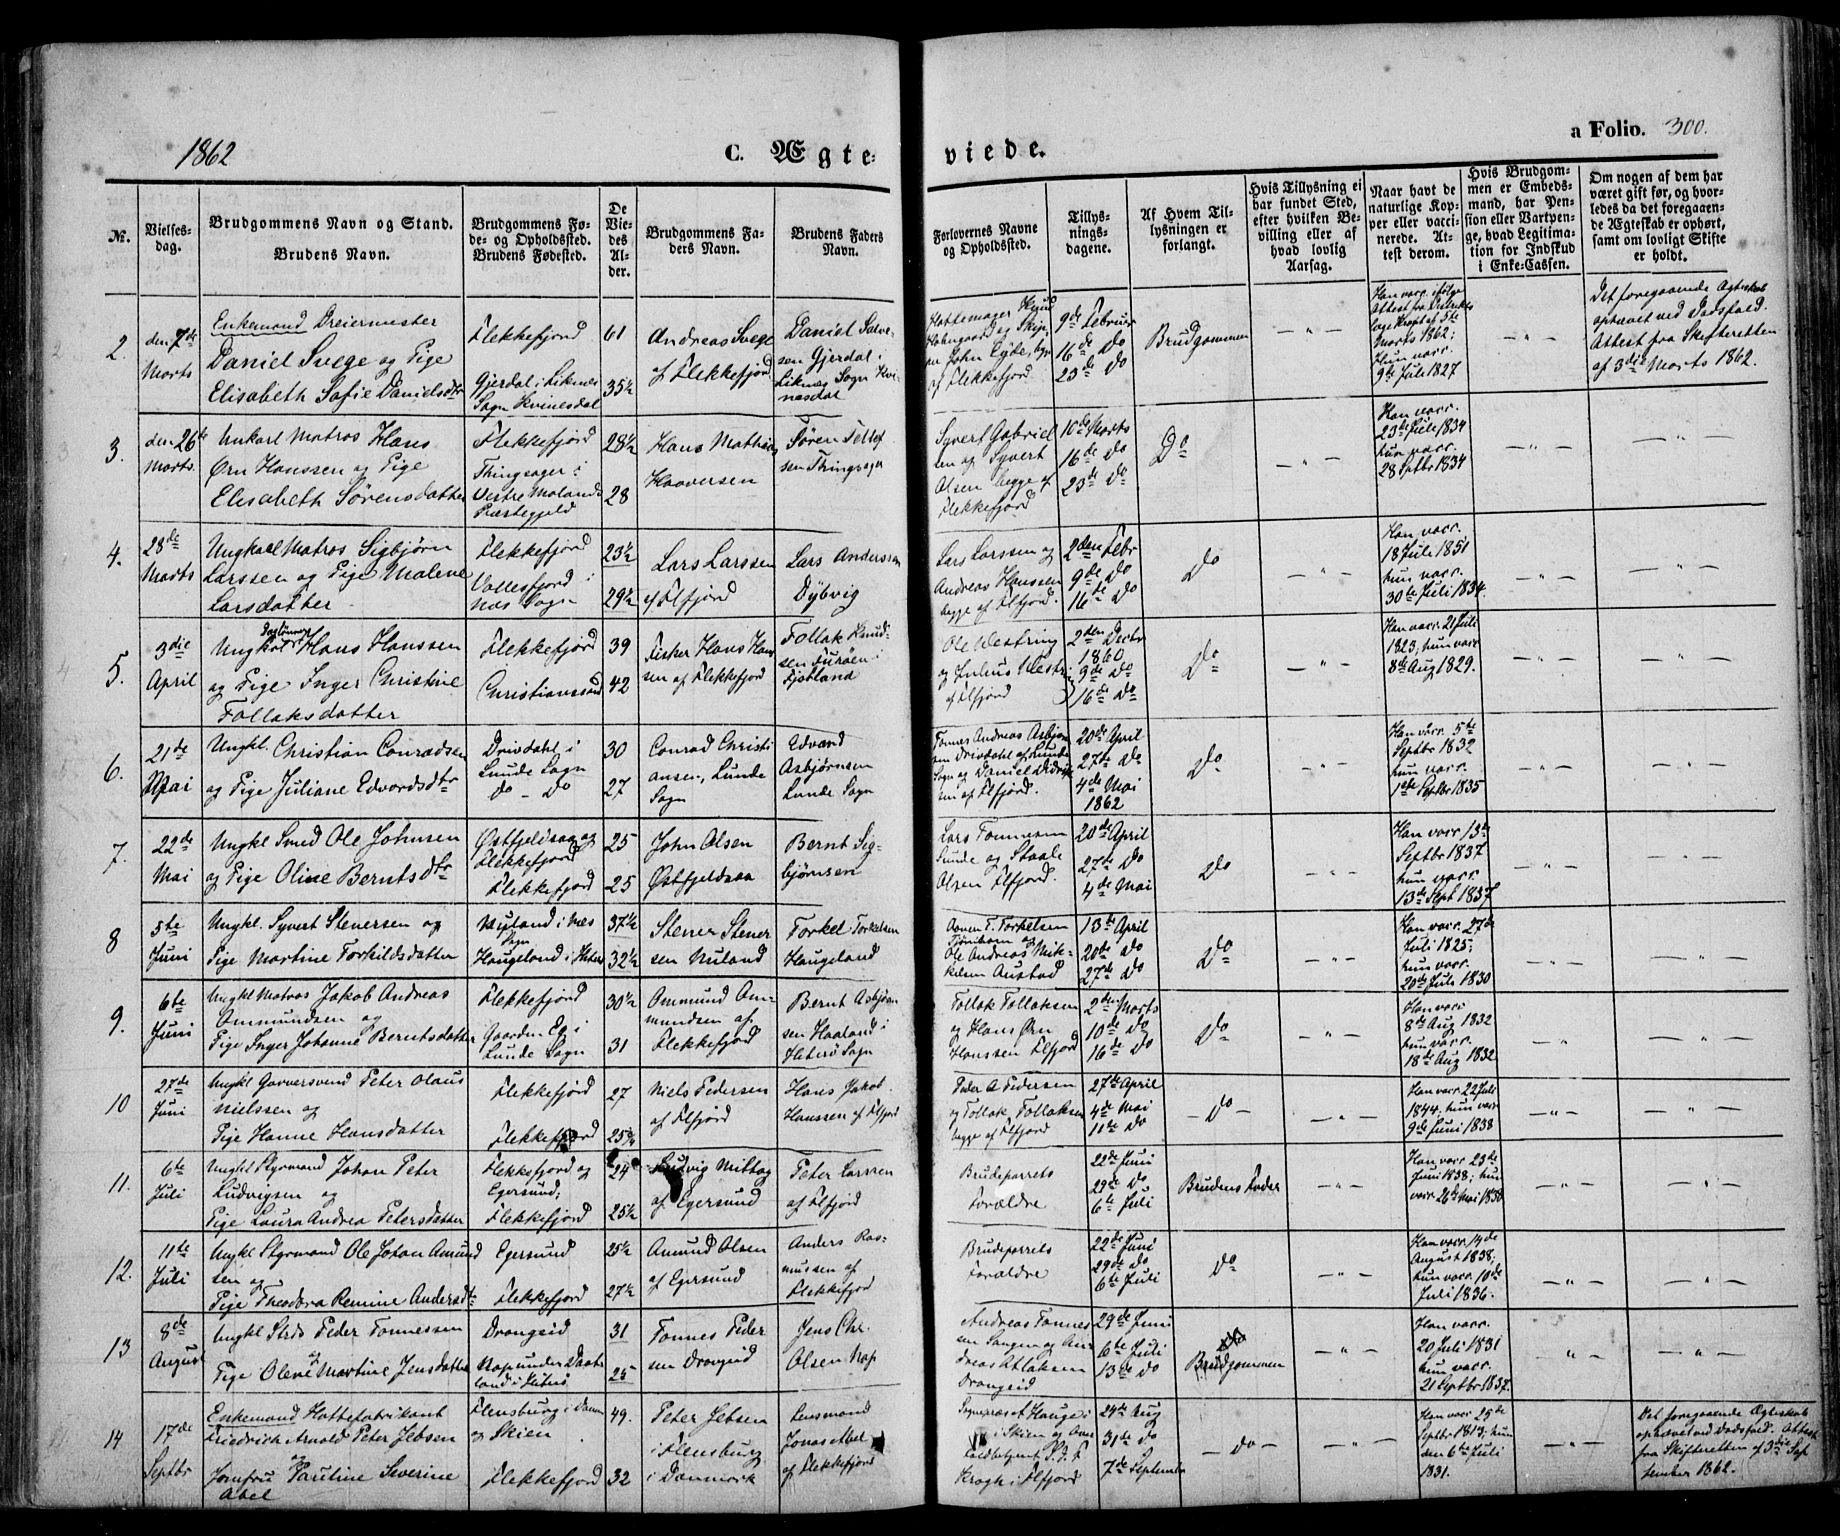 1862
C. Ægteviede.
a Folio. 300.
№.
Vielses-
dag.
Brudgommens Navn og Stand.
Brudens Navn.
Brudgommens Fø-
de- og Opholdssted.
Brudens Fødested.
De
Vie-
des
Al-
der.
Brudgommens Fa-
ders Navn.
Brudens Faders
Navn.
Forlovernes Navne
og Opholdssted.
Tillys-
nings-
dagene.
Af Hvem Til-
lysningen er
forlangt.
Hvis Tillysning ei
har fundet Sted,
efter hvilken Be-
villing eller af
hvad lovlig
Aarsag.
Naar havt de
naturlige Kop-
per eller vacci-
nerede. At-
test derom.
Hvis Brudgom-
men er Embeds-
mand, har Pen-
sion eller Vartpen-
ge, hvad Legitima-
tion for Indskud
i Enke-Cassen.
Om nogen af dem har
været gift før, og hvor-
ledes da det foregaaen-
de Ægteskab er ophørt,
samt om lovligt Skifte
er holdt.
2.
den 7de
Marts
Enkemand Dreiermester
Daniel Svege og Pige
Elisabeth Sofie Danielsdtr
Flekkefjord
Gjerdal i Liknæs
Sogn Kvinesdal
61
35½
Andreas Svege
af Flekkefjord
Daniel Salve-
sen Gjerdal i
Liknæs Sogn Kvi-
nesdal
Hattemager Knud
Skip-
per John Eyde, beg
af Flekkefjord
9de Februar
16de Do
23de Do
Brudgommen
— " —
Han vacc. ifølge
Attest fra Distrikts
lege Kraft af 5te
Marts 1862;
Hun vacc.
9de Juli 1827
— " —
Det foregaaende Ægteskab
ophævet ved Dødsfald.
Attest fra Skifteretten
af 3die Marts 1862.
3.
den 26de
Marts.
Unkarl Matros Hans
Ørn Hanssen og Pige
Elisabeth Sørensdatter
Flekkefjord
Thingsager i
Vestre Molands
Præstegjeld
28½
28
Hans Mathias
Haaversen
Søren Tellef
sen Thingsager
Syvert Gabriel
sen og Syvert
Olsen begge af
Flekkefjord
10de Marts
16de Do
23de Do
Do
— " —
Han vacc.
23de Juli 1834
hun vacc.
28 Septbr 1834
— " —
— " —
4.
28de
Marts
Ungkarl Matros Sigbjørn
Larssen og Pige Malene
Larsdatter
Flekkefjord
Vollesfjord i
Næs Sogn
23½
29½
Lars Larssen
af Flfjord
Lars Anderssen
Dybvig
Lars Larssen og
Andreas Hanssen
begge af Flfjord.
2den Febr
9de Do
16de Do
Do
— " —
Han vacc.
18 Juli 1851
hun vacc.
30te Juli 1834.
— " —
— " —
5.
3die
April
Daglønner
Ungkarl Hans Hanssen
og Pige Inger Christine
Tollaksdatter
Flekkefjord
Christianssand
39
42
Fisker Hans Han
sen af Flekkefjord
Tollak Knud-
sen Furøen i
Fjotland
Ole Westring
og Julius Westring
af Flfjord
2den Decbr
1860
9de Do
16de Do
Do
— " —
Han vacc. 21 Juli
1823; hun vacc.
8de Aug 1829.
— " —
— " —
6.
21de
Mai
Ungkl. Christian Conradsen
og Pige Juliane Edvardsdtr
Drivdahl i
Lunde Sogn
Do – Do
30
27
Conrad Christi
ansen, Lunde
Sogn
Edvard
Asbjørnsen
Lunde Sogn
Tønnes Andreas Asbjørn
sen Drivdahl af Lunde
Sogn og Daniel Didrik
sen af Flfjord.
20de April
27de Do
4de Mai
1862
Do
— " —
Han vacc. 5te
Septbr 1832
hun vacc.
1ste Septbr 1835
— " —
— " —
7.
22de
Mai
Ungkl Smed Ole Johnsen
og Pige Oline Berntsdtr
Østfjeldsaa og
Flekkefjord
Flekkefjord
25
25
John Olsen
Østfjeldsaa
Bernt Sig-
bjørnsen
Lars Tønnesen
Lunde og Staale
Olsen Flfjord.
20de April
27de Do
4de Mai
Do
— " —
Han vacc 13de
Septbr 1837
hun vacc.
13de Sept 1837
— " —
— " —
8
5te
Juni
Ungkl. Syvert Stenersen og
Pige Martine Torkildsdatter
Nuland i Næs
Sogn
Haugeland i Hiterø
37½
32½
Stener Stener
sen Nuland
Torkel Torkelsen
Haugeland
Aanen T. Torkelsen
Ole Andreas Mik-
kelsen Austad
13de April
20de Do
27de Do
Do
— " —
Han vacc. 27de
Juli 1825;
hun vacc.
20de Juli 1830
— " —
— " —
9.
6te
Juni
Ungkl Matros Jakob Andreas
Ommundsen og
Pige Inger Johanne Berntsdatter
Flekkefjord
Gaarden Eg i
Lunde Sogn
30½
31
Ommund Om-
mundsen af
Flekkefjord
Bernt Asbjørn
sen Haaland i
Hiterø Sogn
Tollak Tollaksen
og Hans Ørn
Hanssen Flfjord
2den Marts
10de Do
16de Do
Do
— " —
Han vacc
8de Aug 1832
hun vacc.
18de Aug 1832.
— " —
— " —
10
27de
Juni
Ungkl Garversvend Peter Olaus
Nielssen og
Pige Hanne Hansdatter
Flekkefjord
Flekkefjord
27
25¾
Niels Pedersen
af Flfjord
Hans Jakob
Hanssen af Flfjord
Peder A Pedersen
og Tollak Tollaksen
begge af Flfjord
27de April
4de Mai
11te Do
— Do —
— " —
Han vacc. 22 Juli
1844. hun vacc
9de Juni 1838
— " —
— " —
11.
6te
Juli
Ungkl Styrmand Johan Peter
Ludvigsen og
Pige Laura Andrea Petersdatter
Flekkefjord og
Egersund;
Flekkefjord
24
25½
Ludvig Mittag
af Egersund
Peter Larssen
af Flfjord
Brudeparrets
Forældre
22de Juni
29de Do
6te Juli
Brudens Fader
— " —
Han vacc 23de
Juni 1838; hun
vacc. 26de Mai 1838
— " —
— " —
12.
11te
Juli
Ungkl Styrmand Ole Johan Amund
sen og
Pige Theodora Remine Andersdtr
Egersund
Flekkefjord
25½
27½
Amund Olsen
af Egersund
Anders Ras-
mussen af
Flekkefjord
Brudeparrets
Forældre
22de Juni
29de Do
6te Juli
Do
— " —
Han vacc 14de
August 1838;
hun vacc. 10de
Juli 1836.
— " —
— " —
13
8de
August
Ungkl Strds Peder Tønnessen
og
Pige Olene Martine Jensdatter
Drangeid
Rap under Daate
land i Hiterø
31
25
Tønnes Peder
sen Drangeid
Jens Chr.
Olsen Rap
Andreas Tønnes
sen Saugen og An
dreas Atlaksen
Drangeid
29de Juni
6te Juli
13de Do
Do
Brudgommen
— " —
Han vacc.
20 Juli 1831
hun vacc.
21 Septbr 1837.
"
"
14
17de
Septbr
Enkemand Hattefabrikant
Friedrich Arnold Peter Jebsen
og
Jomfru Pauline Severine
Abel
Flensburg i Danm
og Skien
Flekkefjord
49.
32
Peter Jebsen
i Flensburg
i Danmark
Lensmand
Jonas Abel
af Flekkefjord
Hauge i
i Skien og Over
toldbetjent
Krogh i Flfjord
24de Aug
31de Do
7de September
— Do —
— " —
Han vacc 25de
Septbr 1813; hun
den 6te Juli
1831.
— " —
Det foregaaende Ægteskab
ophævet ved Dødsfald. Attest
fra Skifteretten af 3die Sep
tember 1862.